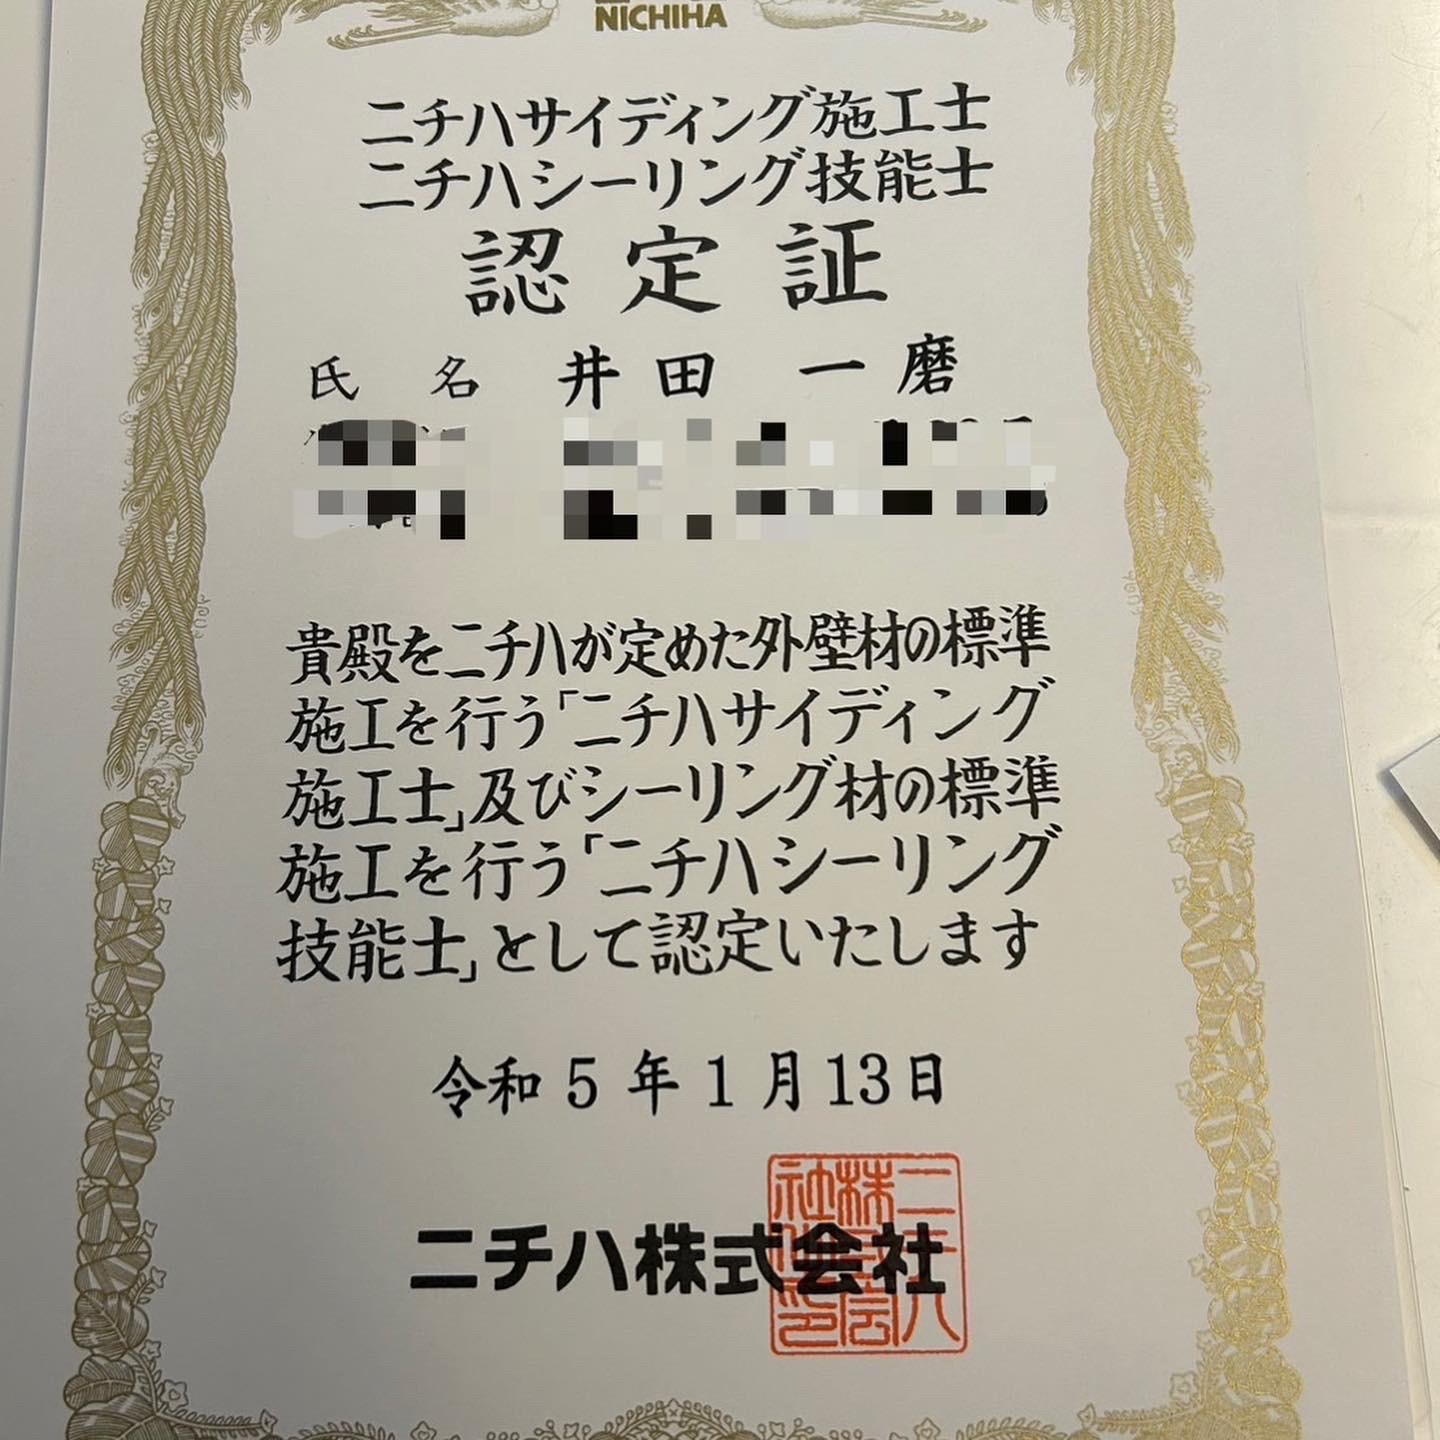 NICHIHA
ニチハサイディング施工士
ニチハシーリング技能士
認定証
氏名 井田 一磨
貴殿をニチハが定めた外壁材の標準
施工を行う「ニチハサイディング
施工士」及びシーリング材の標準
施工を行う「ニチハシーリング
技能士」として認定いたします
令和5年1月13日
ニチハ株式会社